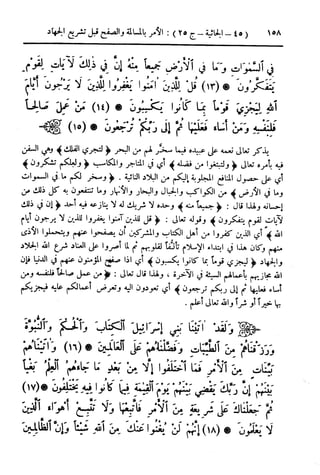 ١٥٨ (٤٥ - الجاثية - ج ٢٥) : الأمر بالمسالمة والصفح قبل تشريع الجهاد
فِي السَّمَوَاتِ وَمَا فِي الْأَرْضِ جَمِيعًا مِنْهُ إِنَّ فِي ذَلِكَ لَآيَاتٍ لِقَوْمٍ
يَتَفَكَّرُونَ * (١٣) قُلْ لِلَّذِينَ آمَنُوا يَغْفِرُوا لِلَّذِينَ لَا يَرْجُونَ أَيَّامَ
اللَّهِ لِيَجْزِيَ قَوْمًا بِمَا كَانُوا يَكْسِبُونَ * (١٤) مَنْ عَمِلَ صَالِحًا
فَلِنَفْسِهِ وَمَنْ أَسَاءَ فَعَلَيْهَا ثُمَّ إِلَى رَبِّكُمْ تُرْجَعُونَ * (١٥)
يذكر تعالى نعمه على عبيده فيما سخر لهم من البحر ﴿ لتجري الفلك ﴾ وهي السفن
فيه بأمره تعالى ﴿ ولتبتغوا من فضله ﴾ أي في المتاجر والمكاسب ﴿ ولعلكم تشكرون ﴾
أي على حصول المنافع المجلوبة إليكم من البلاد النائية . ﴿ وسخر لكم ما في السموات
وما في الأرض ﴾ من الكواكب والجبال والبحار والأنهار وما تنتفعون به كل ذلك من
إحسانه ولهذا قال : ﴿ جميعا منه ﴾ وحده لا شريك له لا ينازعه فيه أحد ﴿ إن في ذلك
لآيات لقوم يتفكرون ﴾ وقوله تعالى : ﴿ قل للذين آمنوا يغفروا للذين لا يرجون أيام
الله ﴾ أي الذين كفروا من أهل الكتاب والمشركين أن يصفحوا عنهم ويتحملوا الأذى
منهم وكان هذا في ابتداء الإسلام تأليفا لقلوبهم ثم لما أصروا على العناد شرع الله الجلاد
والجهاد ﴿ ليجزي قوما بما كانوا يكسبون ﴾ أي إذا صفح المؤمنون عنهم في الدنيا فإن
الله مجازيهم بأعمالهم السيئة في الآخرة ، ولهذا قال تعالى : ﴿ من عمل صالحا فلنفسه ومن
أساء فعليها ثم إلى ربكم ترجعون ﴾ أي تعودون إليه وتعرض أعمالكم عليه فيجزيكم
بها خيرا أو شرا والله تعالى أعلم .
وَلَقَدْ آتَيْنَا بَنِي إِسْرَائِيلَ الْكِتَابَ وَالْحُكْمَ وَالنُّبُوَّةَ
وَرَزَقْنَاهُمْ مِنَ الطَّيِّبَاتِ وَفَضَّلْنَاهُمْ عَلَى الْعَالَمِينَ * (١٦) وَآتَيْنَاهُمْ
بَيِّنَاتٍ مِنَ الْأَمْرِ فَمَا اخْتَلَفُوا إِلَّا مِنْ بَعْدِ مَا جَاءَهُمُ الْعِلْمُ بَغْيًا
بَيْنَهُمْ إِنَّ رَبَّكَ يَقْضِي بَيْنَهُمْ يَوْمَ الْقِيَمَةِ فِيمَا كَانُوا فِيهِ يَخْتَلِفُونَ * (١٧)
ثُمَّ جَعَلْنَاكَ عَلَى شَرِيعَةٍ مِنَ الْأَمْرِ فَاتَّبِعْهَا وَلَا تَتَّبِعْ أَهْوَاءَ الَّذِينَ
لَا يَعْلَمُونَ * (١٨) إِنَّهُمْ لَنْ يُغْنُوا عَنْكَ مِنَ اللَّهِ شَيْئًا وَإِنَّ الظَّالِمِينَ